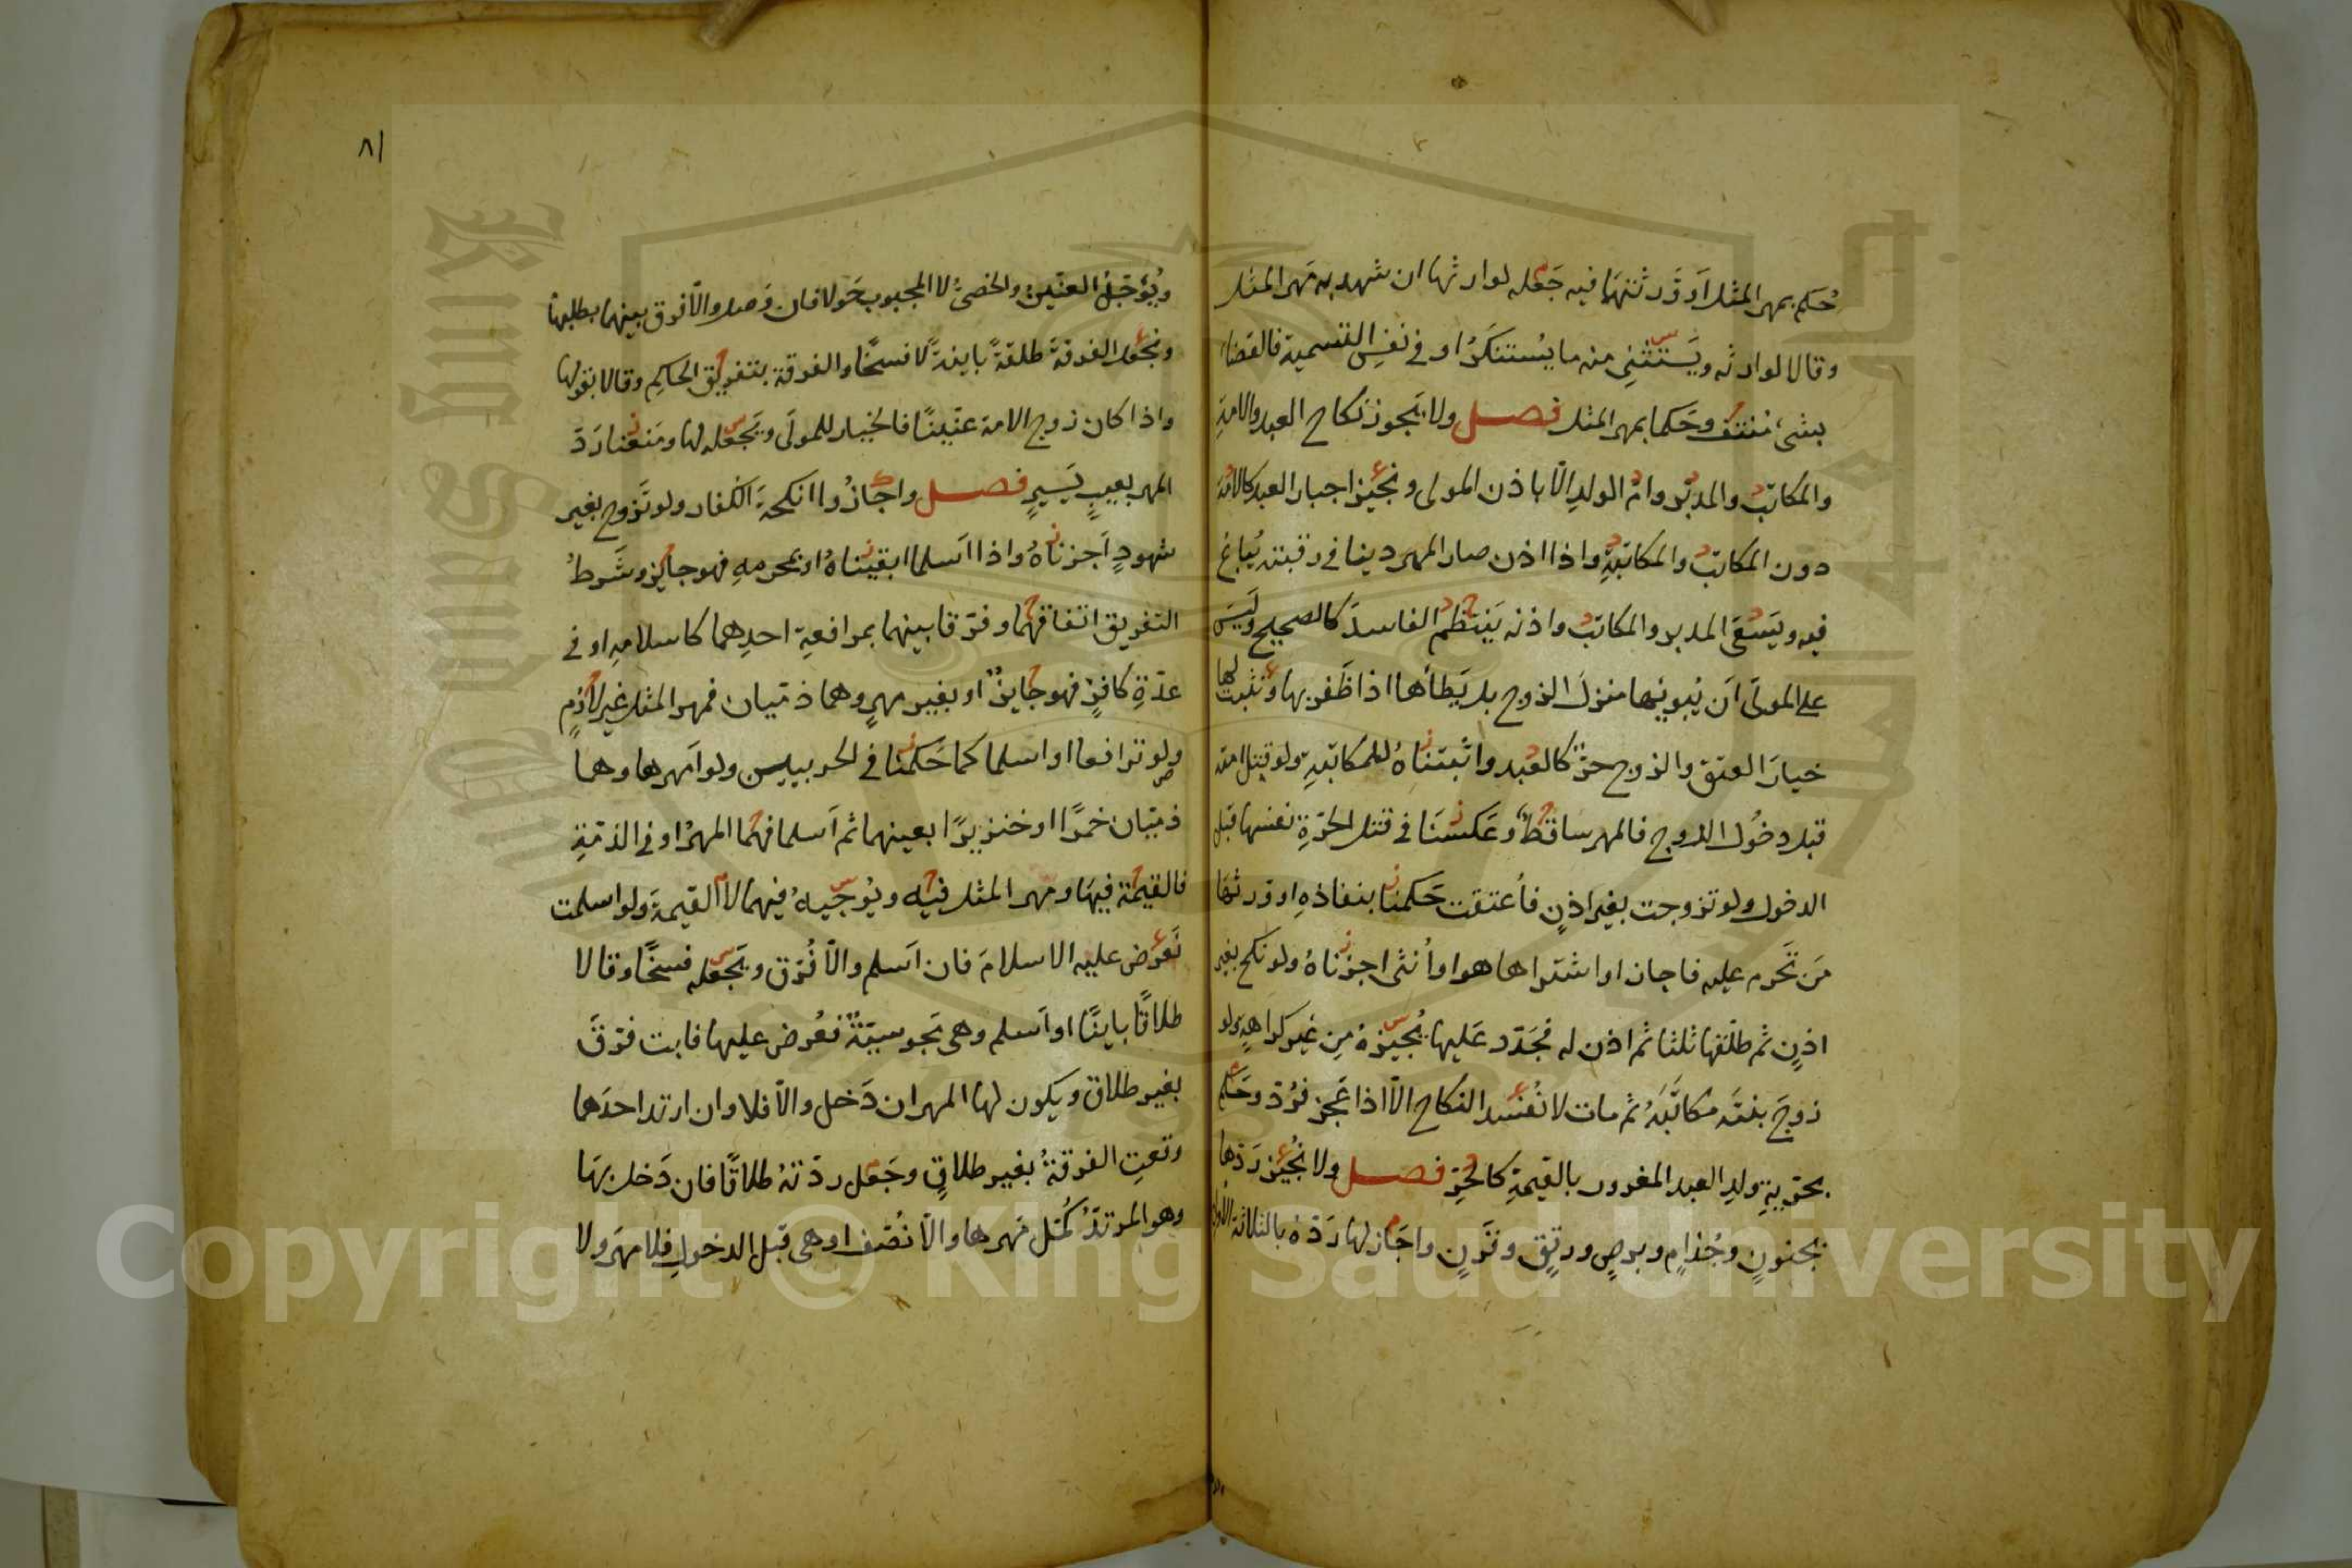 حُكم بمهر المثل او وَرثتهما فيه جَعَله لوارثها ان شهد به مَهر المثل
وقالا لوارثه ويَستثنِى منه ما يُستنكَرُ او فى نفس التسمية فالقضاء
بشىءٍ مُنتفٍ وحَكما بمهر المثل فصل ولا يَجوز نكاح العبد والامةِ
والمكاتبِ والمدبَّر وامّ الولدِ الّا باذن المولى ونُجيز اجبار العبد كالامَة
دون المكاتبِ والمكاتبةِ واذا اذن صار المهر دينا فى رقبته يُباع
فيه ويَسعَى المدبر والمكاتب واذنه يَنتظم الفاسدَ كالصحيح ولَيسَ
على المولَى اَن يُبوّئها منزلَ الزوج بل يَطأها اذا ظَفر بها ونُثبت لها
خيارَ العتق والزوج حرّ كالعبد واثبتناهُ للمكاتبةِ ولو قتل امته
قبل دخُول الزوج فالمهر ساقطٌ وعَكسنَا فى قتل الحرّةِ نفسَها قبل
الدخول ولو تزوجت بغير اذنٍ فاُعتقت حَكمنا بنفاذهِ او ورثها
مَن تَحرم عليه فاجاز او اشتراها هو او اُنثى اجزناهُ ولو نكح بغير
اذنٍ ثم طلّقها ثلثا ثم اذن له فجَدّد عَليها يُجيزهُ مِن غير كراهةٍ ولو
زوجَ بنتَه مكاتَبَهُ ثم مات لا نُفسد النكاح الّا اذا عَجز فرُدّ وحَكم
بحرّيةِ ولدِ العبد المغرور بالقيمةِ كالحُرِّ فصل ولا نُجيز رَدّها
بجنونٍ وجُذامٍ وبرصٍ ورتقٍ وقَرَنٍ واجَاز لها رَدّهُ بالثلاثة الاُوَل
٨١
ويُؤجّلُ العنّين والخصىُّ لا المجبوب حَولا فان وَصل والّا فرق بينهما بطلبها
ونجعل الفرقةَ طلقةً باينةً لا فسخًا والفرقة بتفريق الحاكِم وقالا بقولها
واذا كان زوج الامة عنّينًا فالخيار للمولَى ويَجعَله لها ومنعنا رَدّ
المهر بعيبٍ يَسيرٍ فصل واجازُوا انكحةَ الكفار ولو تَزوج بغير
شهودٍ اَجزناهُ واذا اَسلما ابقيناهُ او بمحرمهِ فهو جايز وشَرطُ
التفريق اتفاقهُما وفرّقا بينهما بمرافعة احدِهما كاسلامهِ او فى
عدّةِ كافرٍ فهو جايزٌ او بغير مهرٍ وهما ذمّيان فمهر المثل غير لازمٍ
ولو ترافعا او اسلما كما حَكمنا فى الحربيين ولو اَمهرها وهما
ذمّيان خمرًا او خنزيرًا بعينهما ثم اَسلما فهما المهرُ او فى الذمّةِ
فالقيمة فيهَا ومهر المثل فيه ويُوجبهُ فيهما لا القيمة ولو اسلمت
نَعرض عليه الاسلامَ فان اَسلم والّا فُرّق ويَجعَله فسخًا وقالا
طلاقًا باينًا او اَسلم وهى مَجوسيّةٌ فعُرض عليها فابت فرّقَ
بغير طلاق ويكون لها المهر ان دَخل والّا فلا وان ارتد احدهما
وقعتِ الفرقةُ بغير طلاقٍ وجَعل ردّتهُ طلاقًا فان دَخل بهَا
وهو المرتدّ كُمّل مَهرها والّا نُصّف او هى قبل الدخولِ فلا مهرَ ولا
Copyright © King Saud University